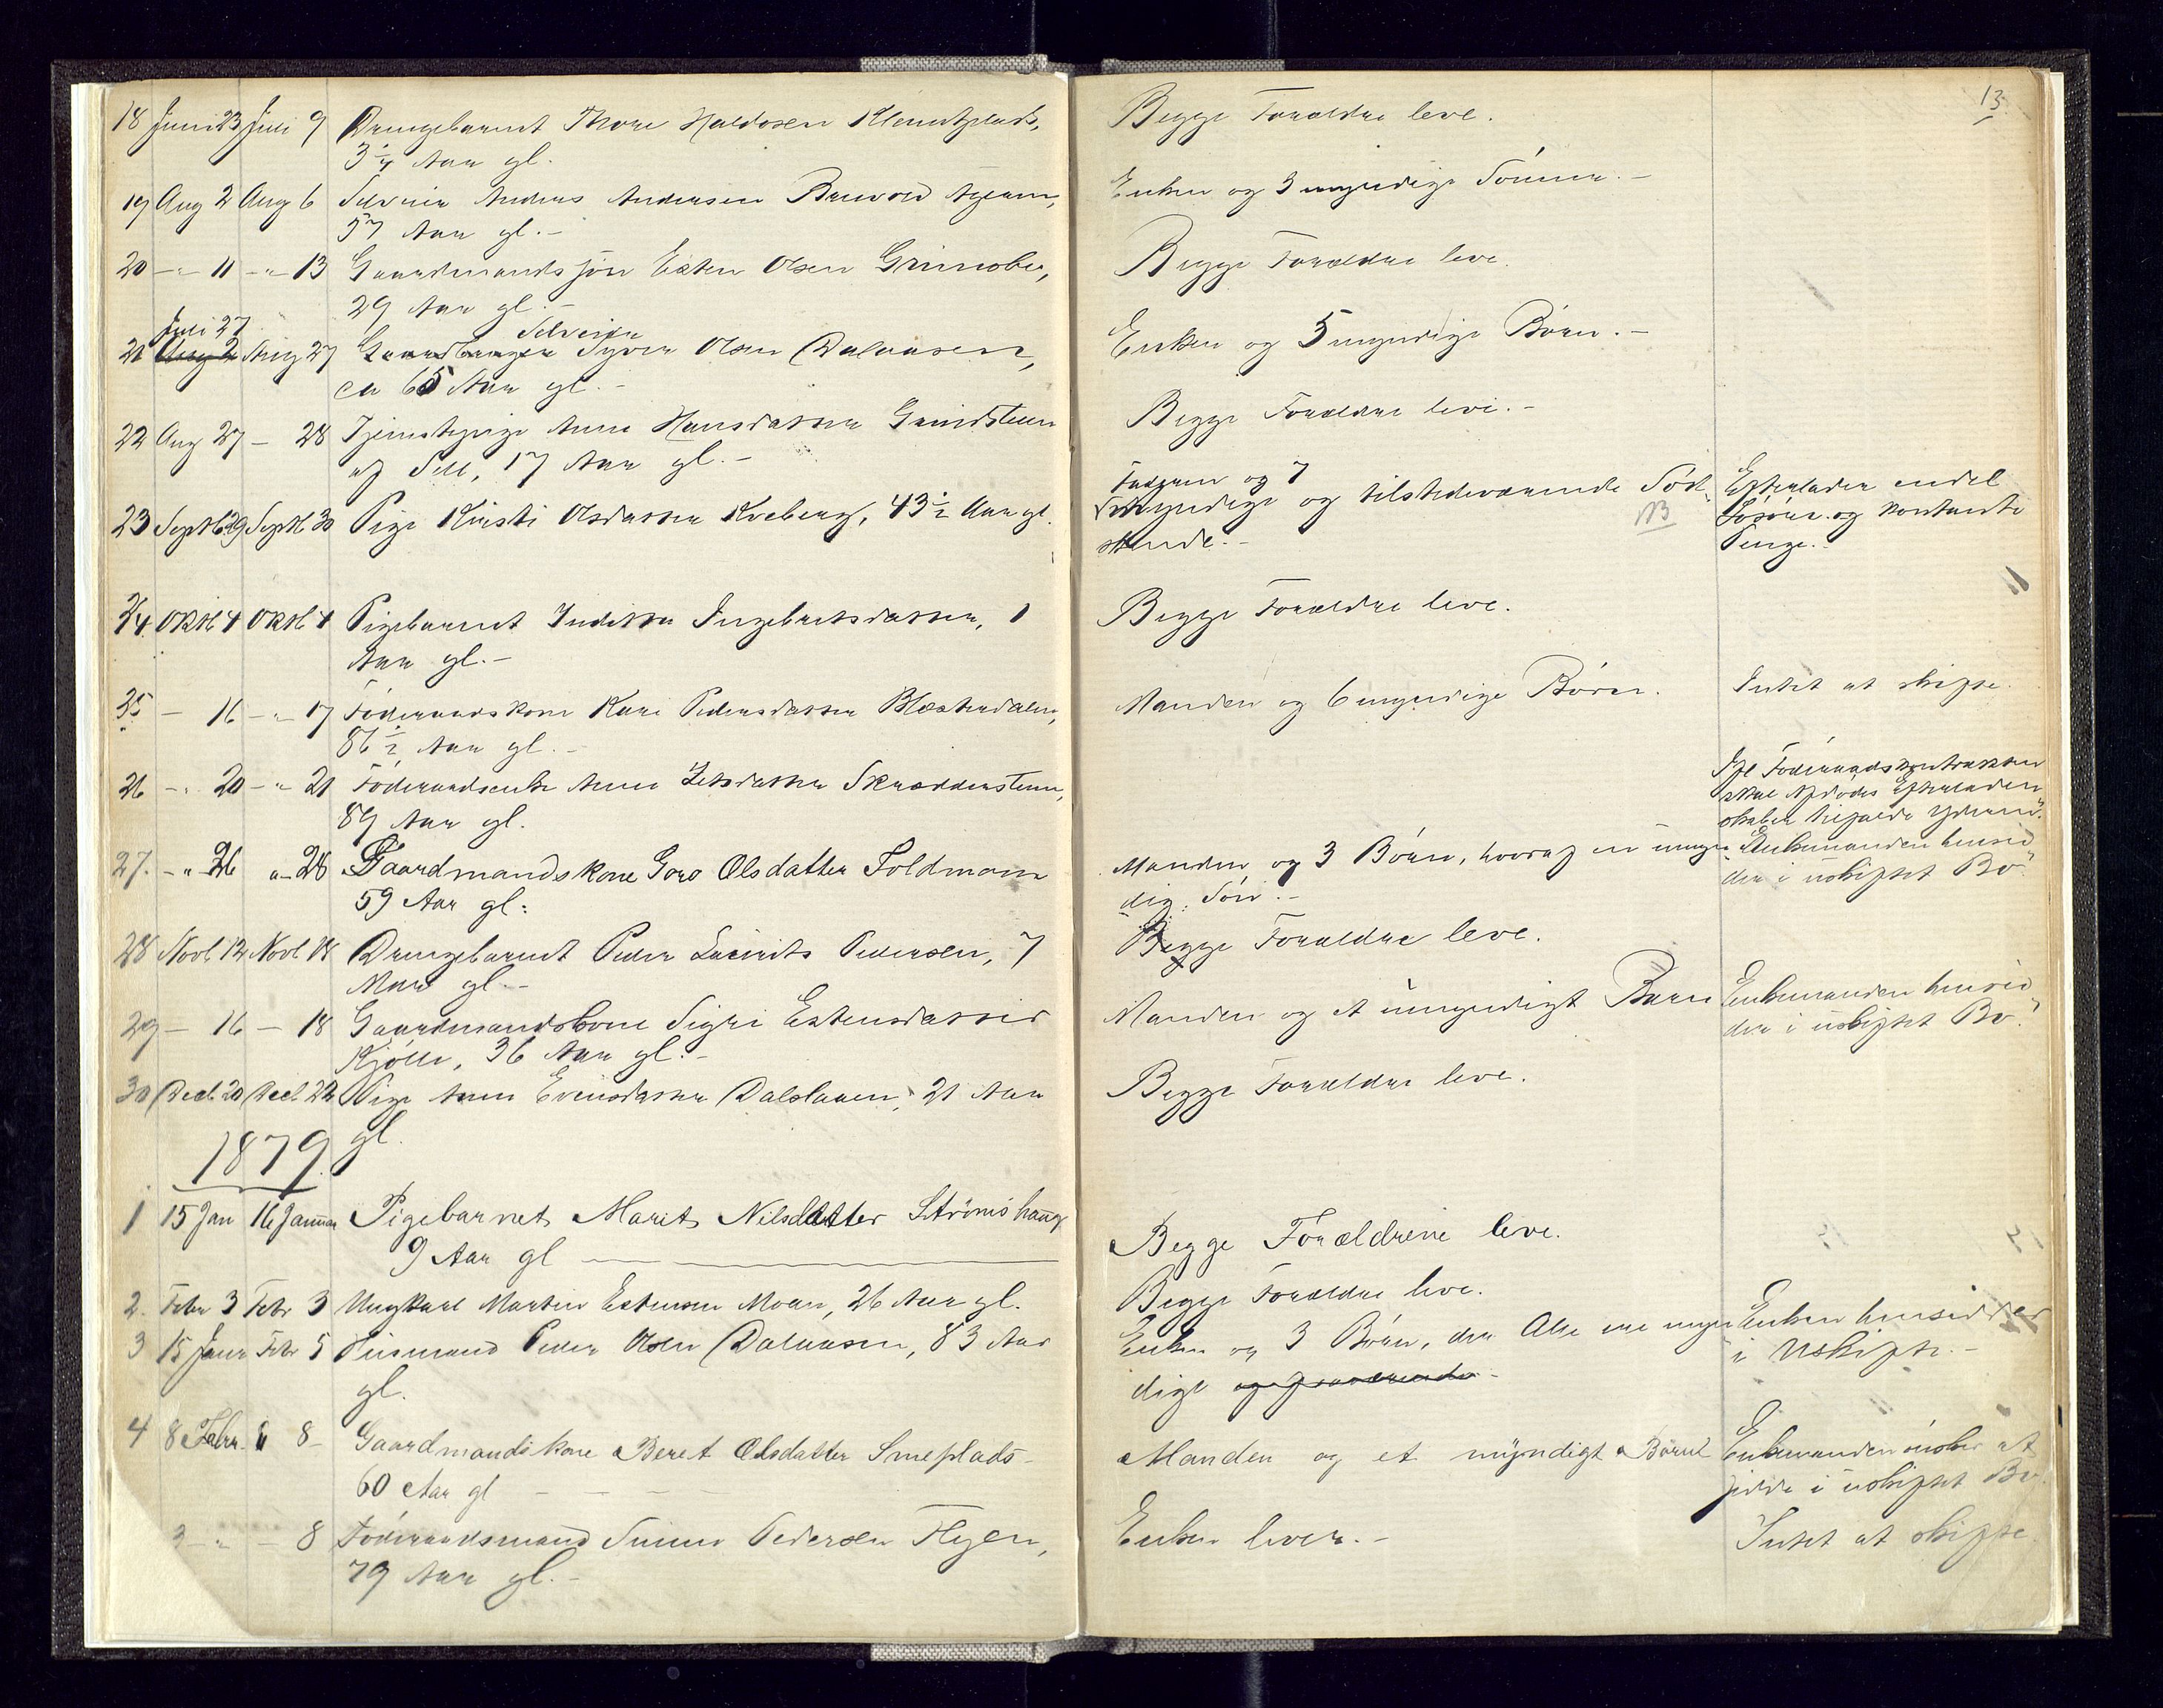 13
18 Juni 23 Juli 9 Drengebarnet Thore Haldosen Klemetplads, Begge Forældre leve.
3 1/4 Aar gl.
19 Aug 2 Aug 6 Selveier Anders Andersen 57 Aar gl. - Enken og 3 myndige Sønner. -
20 -"- 11 -"- 13 Gaardmandssøn Esten Olsen Begge Forældre leve.
29 Aar gl. -
Juli 27 Selveier
21 Aug 2 Aug 27 Gaardbruger Syver Olsen Dalaasen, Enken og 5 myndige Børn. -
ca 65 Aar gl. -
22 Aug 27 - 28 Tjenestepige Anne Hansdatter Grindstuen Begge Forældre leve. -
af Sell, 17 Aar gl. -
Faderen og 7
23 Septb 29 Septb 30 Pige Kirsti Olsdatter Kveberg, 43 1/2 Aar gl. myndige og tilstedeværende Sød- Efterlader endel
skende. - NB Løsøre og kontante
Penge. -
24 Oktb 4 Oktb 4 Pigebarnet Ingebretsdatter, 1 Begge Forældre leve.
Aar gl. -
25 - 16 -"- 17 Føderaadskone Kari Pedersdatter Manden og 6 myndige Børn. Intet at skifte.
86 1/2 Aar gl. -
26 -"- 20 -"- 21 Føderaadsenke Anne 89 Aar gl. Ifl Føderaadskontrakten
skal Afdødes Efterladen
skaber tilfalde Yderen".
27. -"- 26 "- 28 Gaardmandskone Goro Olsdatter Toldmoen Manden og 3 Børn, hvoraf en umyn- "Enkemanden hensid
59 Aar gl: dig Søn. - der i uskiftet Bo."
28 Novb 12 Novb 18 Drengebarnet Peder Laurits Pedersen, 7 Begge Forældre leve.
Mdr gl. -
29 - 16 - 18 Gaardmandskone Sigri Estensdatter Manden og et umyndigt Barn Enkemanden hensid
Kjølle, 36 Aar gl. - der i uskiftet Bo."
30 Decb 20 Decb 22 Pige Anne Evensdatter Dalslaaen, 21 Aar Begge Forældre leve.
gl.
1879
1 15 Jan 16 Januar Pigebarnet Marit Nilsdatter Strömshaug Begge Forældrene leve.
9 Aar gl
2. Febr 3 Febr 3 Ungkarl Martin Estensen Moan, 26 Aar gl. Begge Forældre leve.
3 15 Janr Febr 5 Husmand Peder Olsen Dalaasen, 83 Aar Enken og 3 Børn, der Alle ere myn- Enken hensidder
gl. dige i Uskifte. -
4 8 Febr. " 8 - Gaardmandskone Beret Olsdatter Smeplads - Manden og et myndigt Barn Enkemanden ønsker at
60 Aar gl - - - sidde i uskiftet Bo.
3 -"- - 8 Føderaadsmand Simen Pedersen Enken lever. - Intet at skifte
79 Aar gl. -